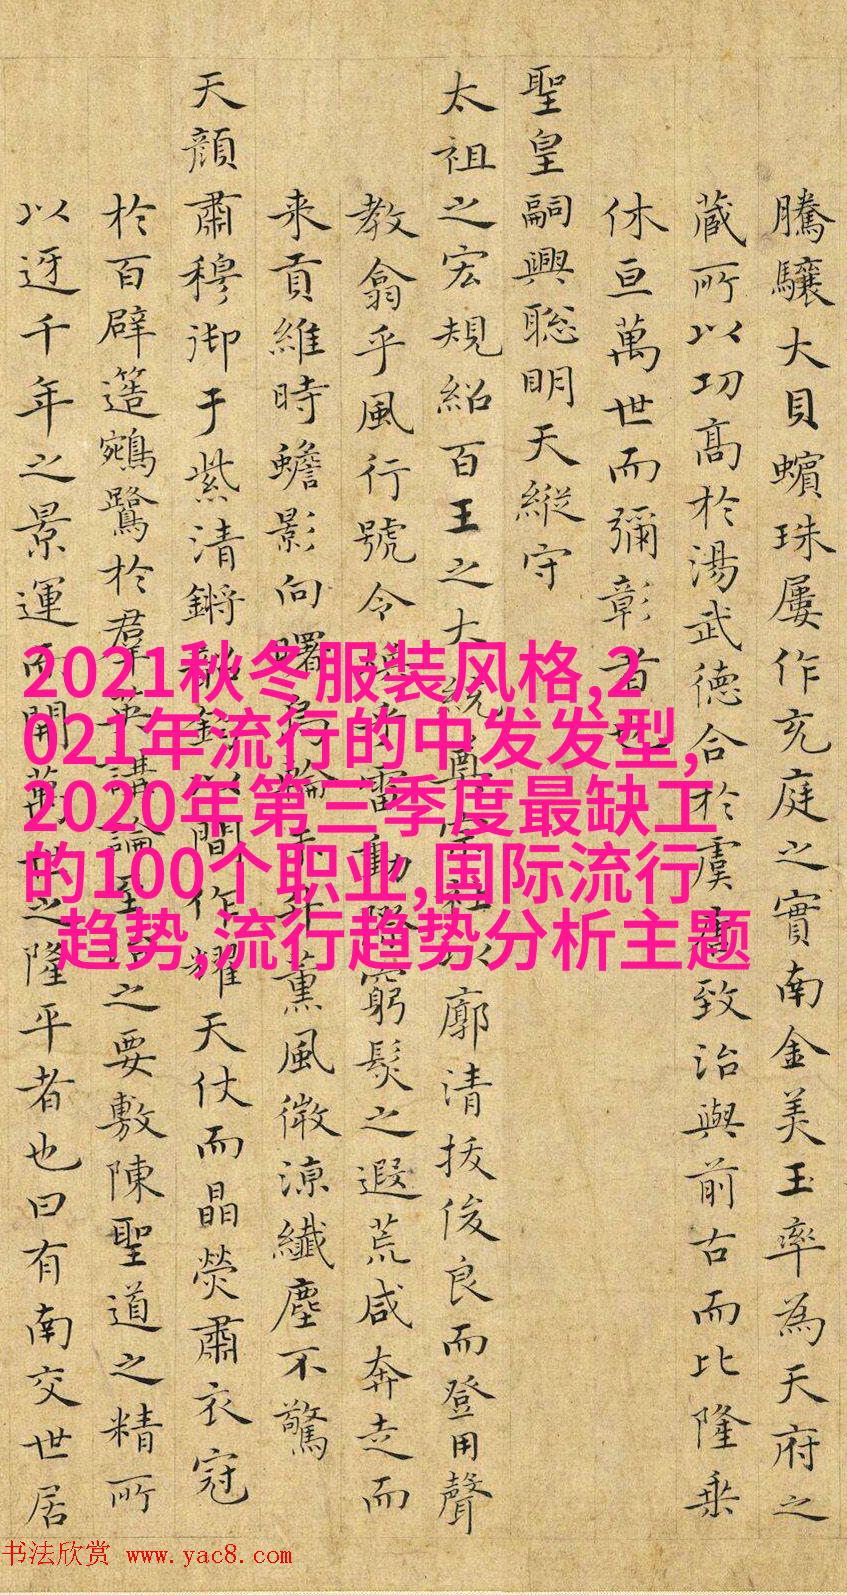 騰驤大貝蠙珠屢作充庭之實南金美玉率為天府之
蔵所以功髙於湯武德合於虞致治與前古而比隆乗
休亘萬世而彌彰者也
聖皇嗣興聡明天縦守
太祖之宏規紹百王之大統以廓清拔俊良而登用聲
教翕乎風行號令乎雷動際窮髮之遐荒咸奔走而
来貢維時蟾影向曙薫風微涼纖塵不驚
天顔肅穆御于紫清鏘以間作耀天仗而晶熒肅衣冠
於百辟簉鵷鷺於羣英講論至之要敷陳聖道之精所
以迓千年之景運而開之隆平者也曰有南交世居
2021秋冬服装风格,2
021年流行的中发发型,
2020年第三季度最缺工
的100个职业,国际流行
趋势,流行趋势分析主题
书法欣赏 www.yac8.com